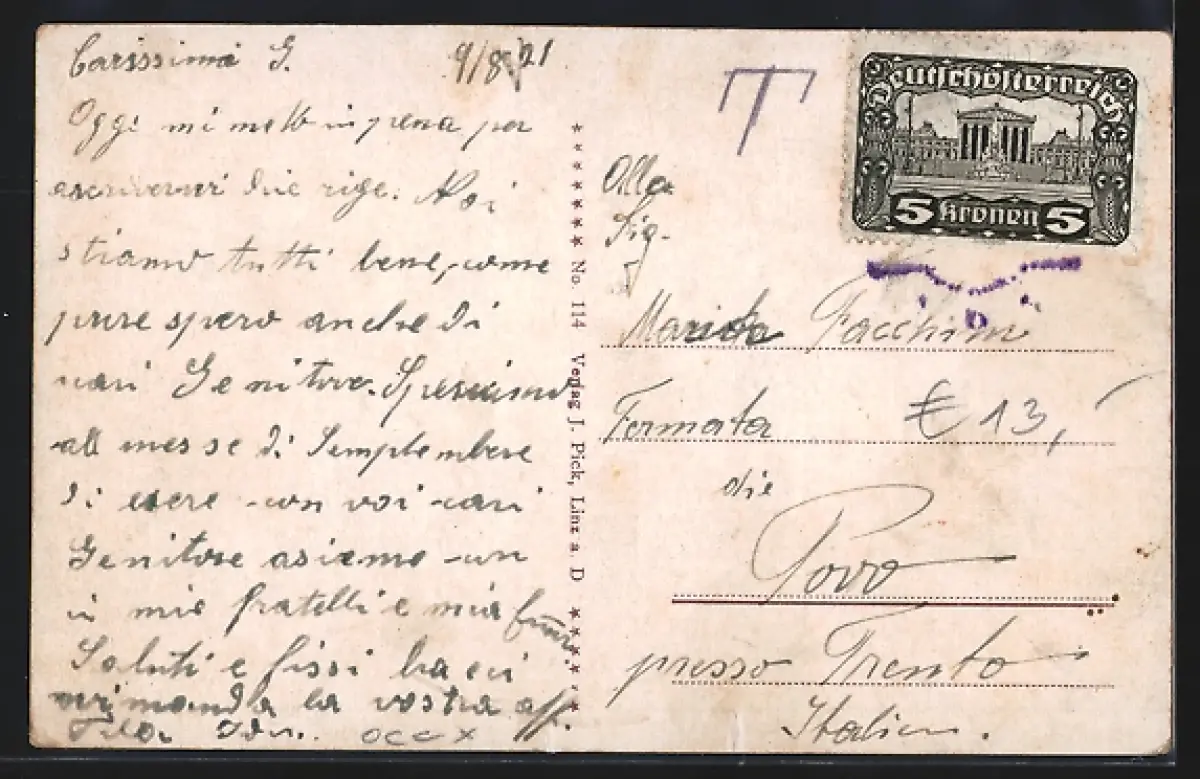 Carissima G. 9/8 21
Oggi mi metto in pena per
escrivervi due rige. Noi
stiamo tutti bene, come
pure spero anche di
cari Genitore. Speriamo
all messe di Semptembere
di esere con voi cari
Genitore asieme con
i mio fratelli e mia
Saluti e bassi
vi manda la vostra aff.
No. 114 Verlag J. Pick, Linz a. D
T
Deutschösterreich
5 Kronen 5
Alla
Sig.
Facchini
Fermata € 13,
die
Povo
presso Trento
Italien.